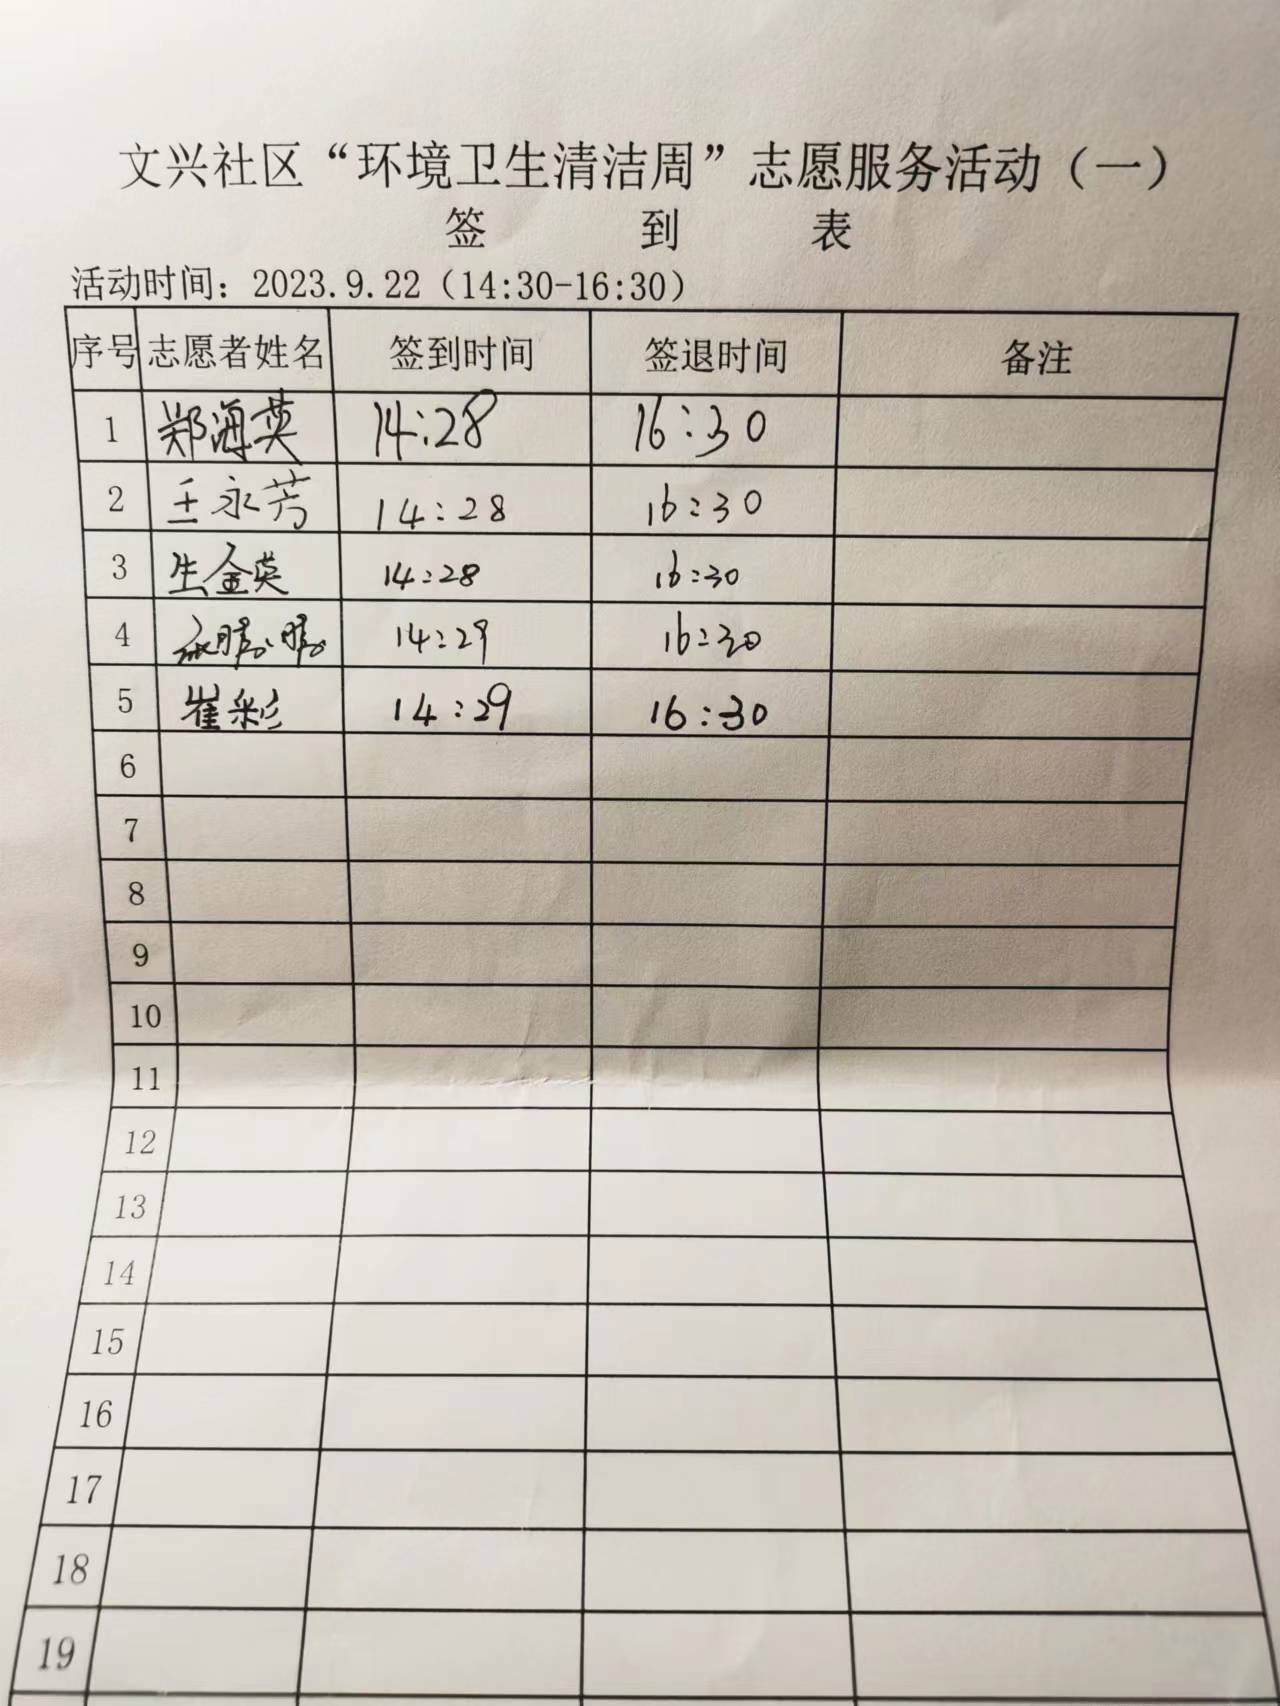 文兴社区“环境卫生清洁周”志愿服务活动（一）
签 到 表
活动时间：2023.9.22（14:30-16:30）
序号 志愿者姓名 签到时间 签退时间 备注
1 郑海英 14:28 16:30
2 王永芳 14:28 16:30
3 生金英 14:28 16:30
4 14:29 16:30
5 崔彩 14:29 16:30
6
7
8
9
10
11
12
13
14
15
16
17
18
19